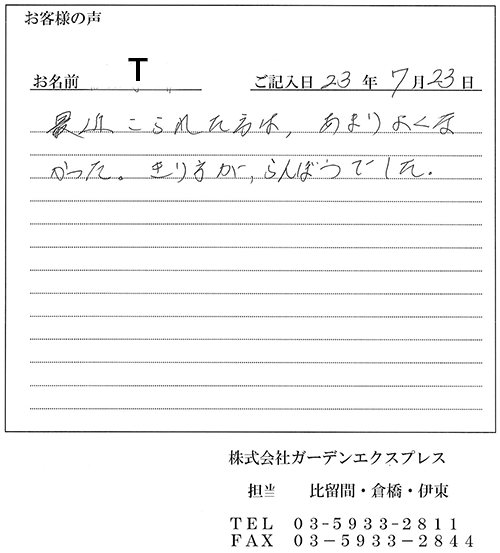 お客様の声
お名前 T ご記入日 23年 7月23日
最近こられた方は、あまりよくな
かった。きり方が、らんぼうでした.
株式会社ガーデンエクスプレス
担当 比留間・倉橋・伊東
TEL 03-5933-2811
FAX 03-5933-2844